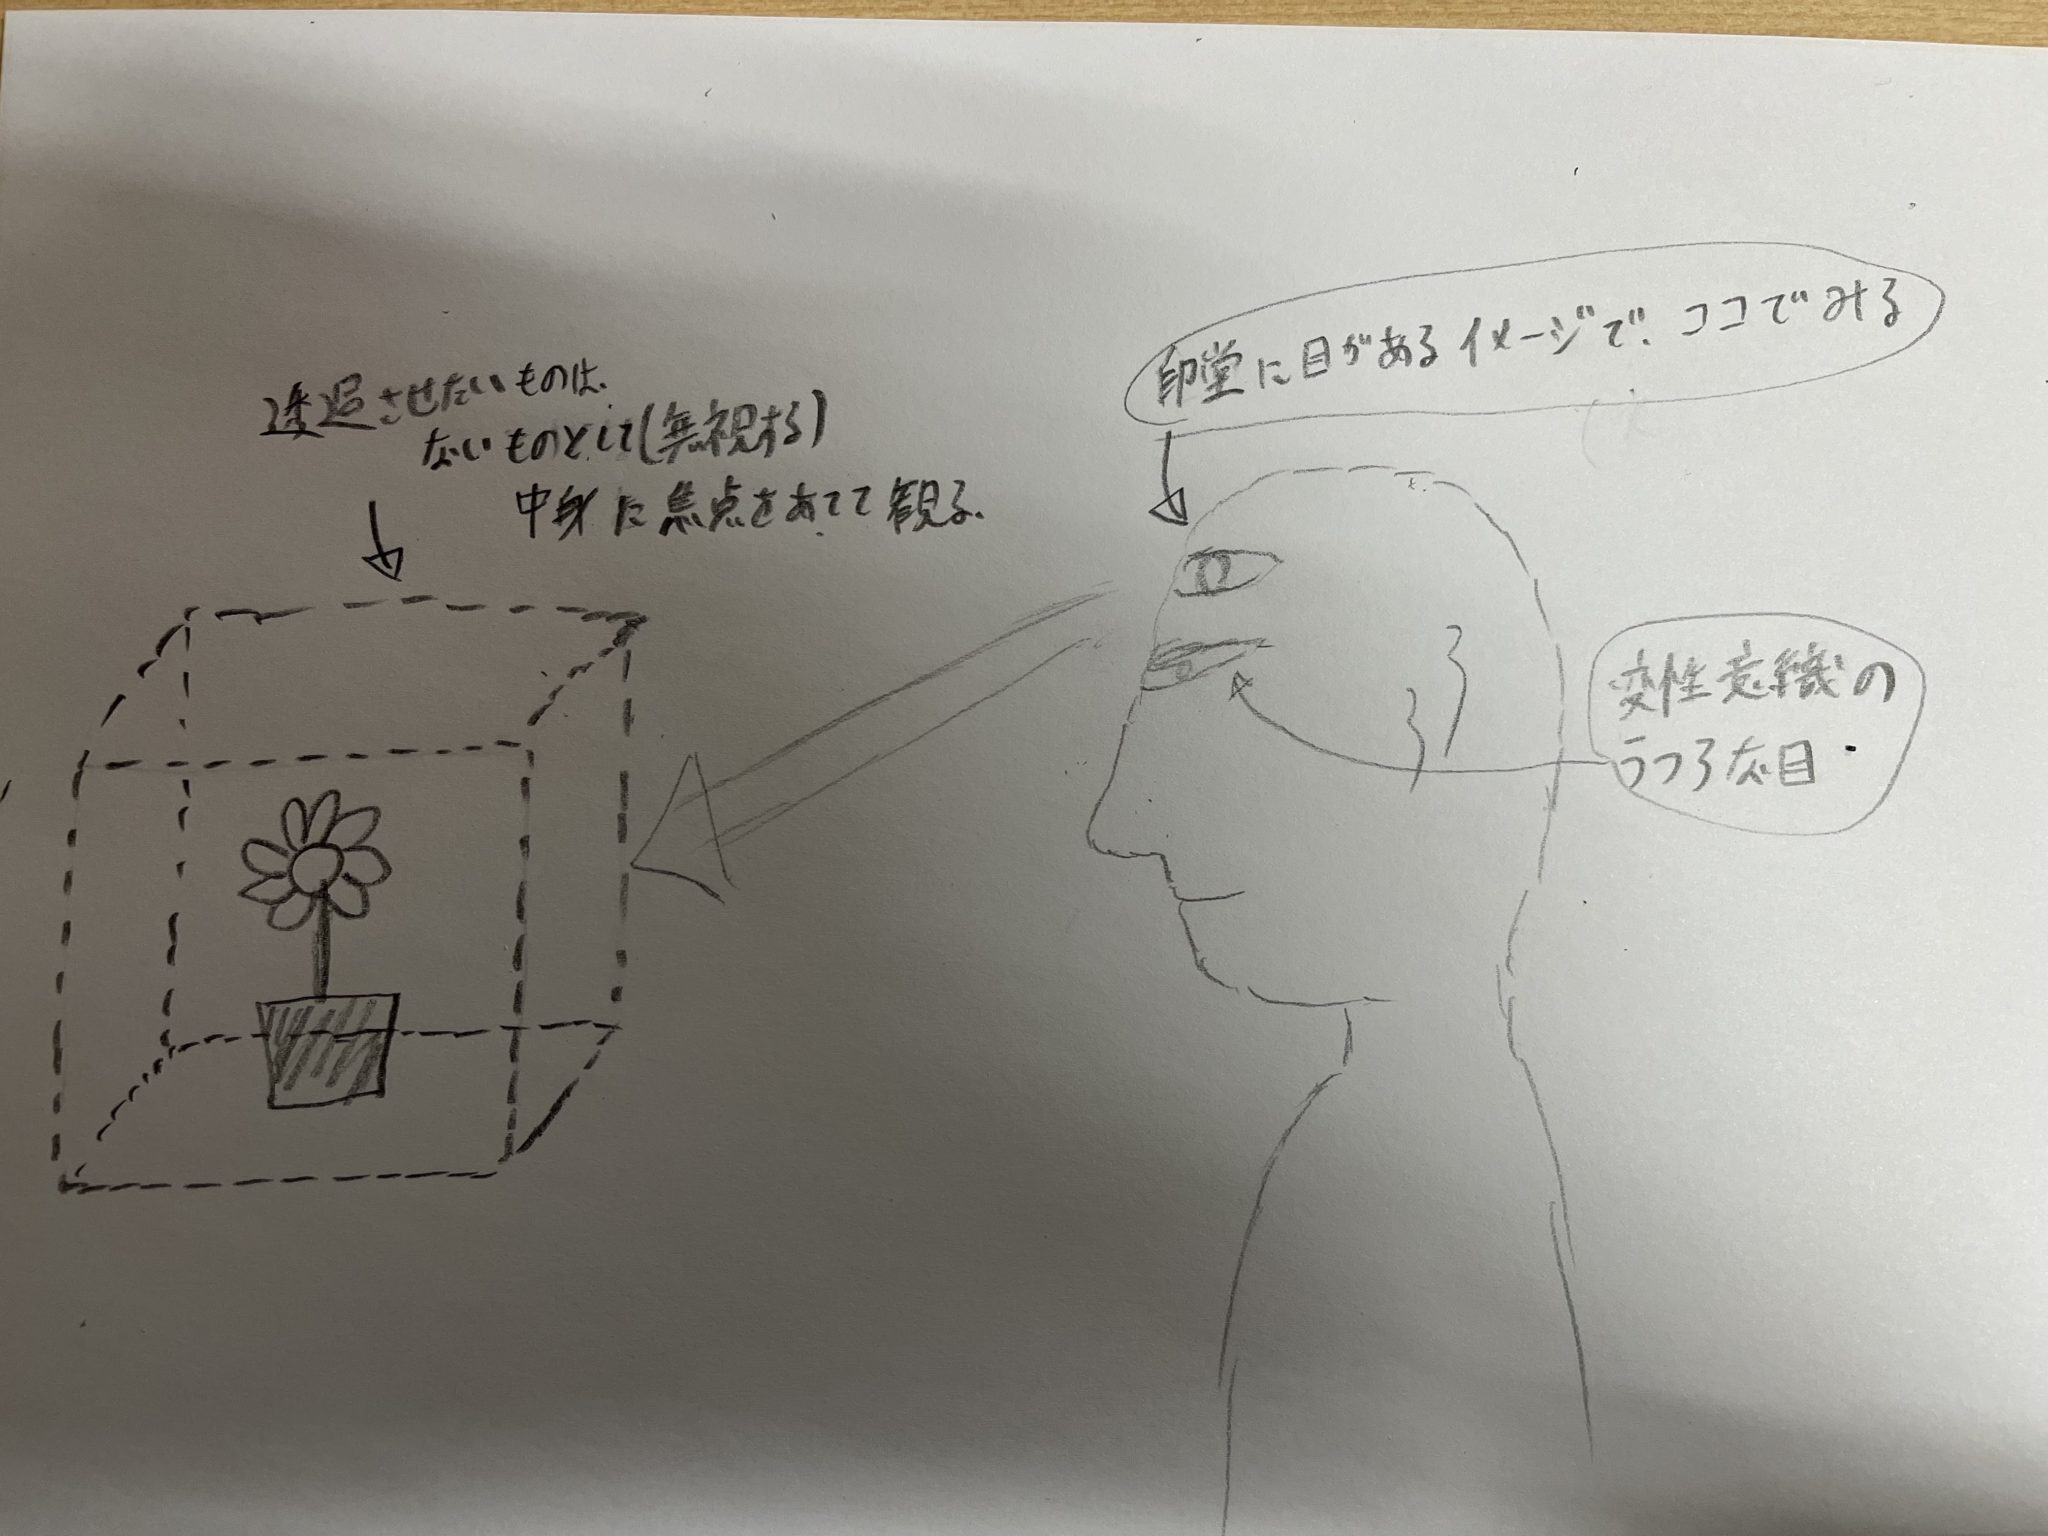 透過させたいものは、
ないものとして(無視する)
中身に焦点をあてて観る.
印堂に目があるイメージで、ココでみる
変性意識の
うつろな目.